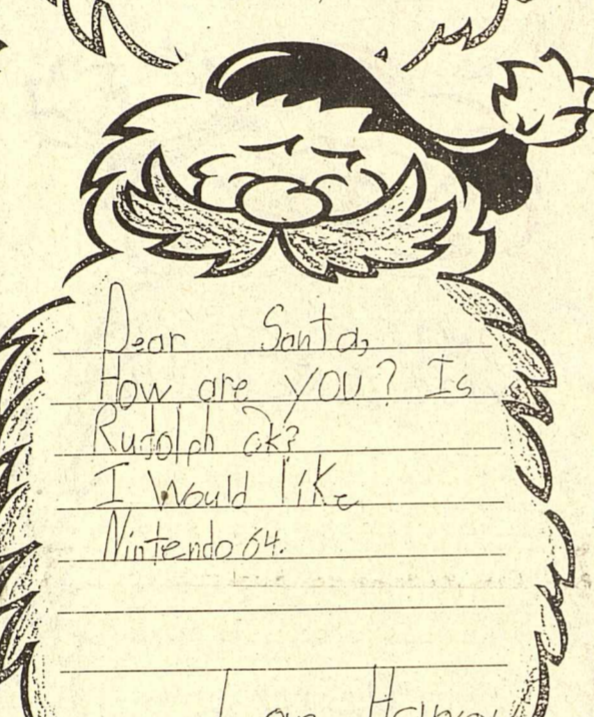 Dear Santa,
How are you? Is
Rudolph ok?
I would like
Nintendo 64.
Love